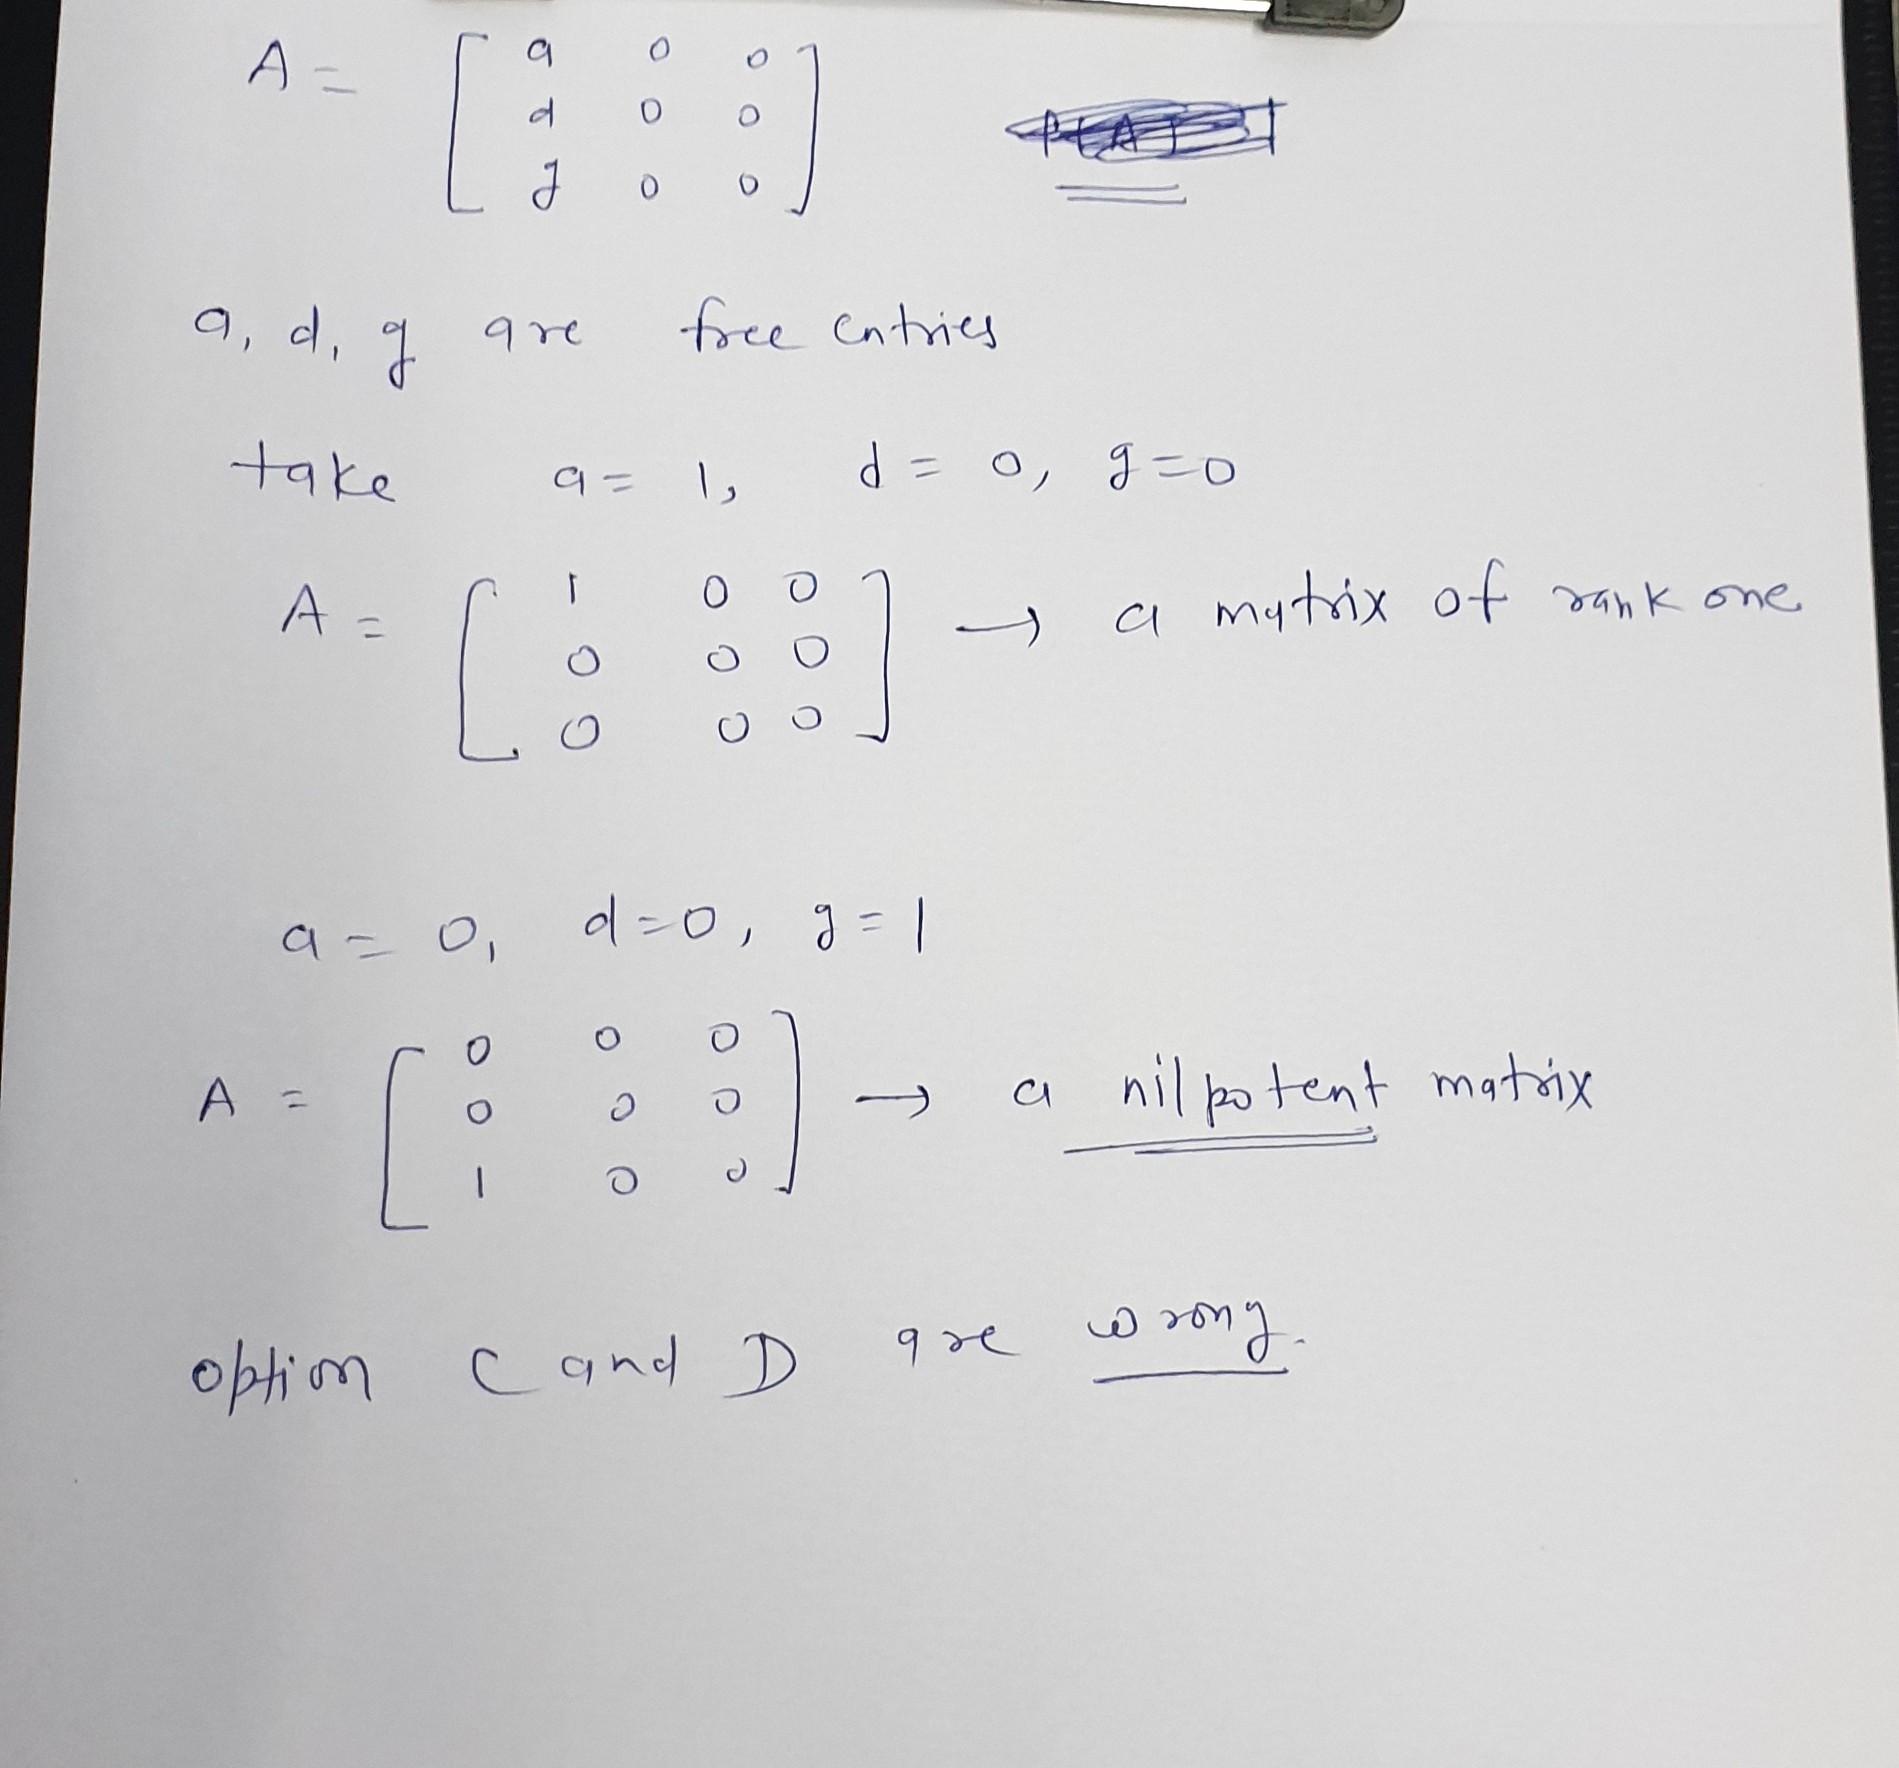 A = [ a 0 0
d 0 0
g 0 0 ]
a, d, g are free entries
take a = 1, d = 0, g = 0
A = [ 1 0 0
0 0 0
0 0 0 ] → a matrix of rank one
a = 0, d = 0, g = 1
A = [ 0 0 0
0 0 0
1 0 0 ] → a nilpotent matrix
option C and D are wrong.